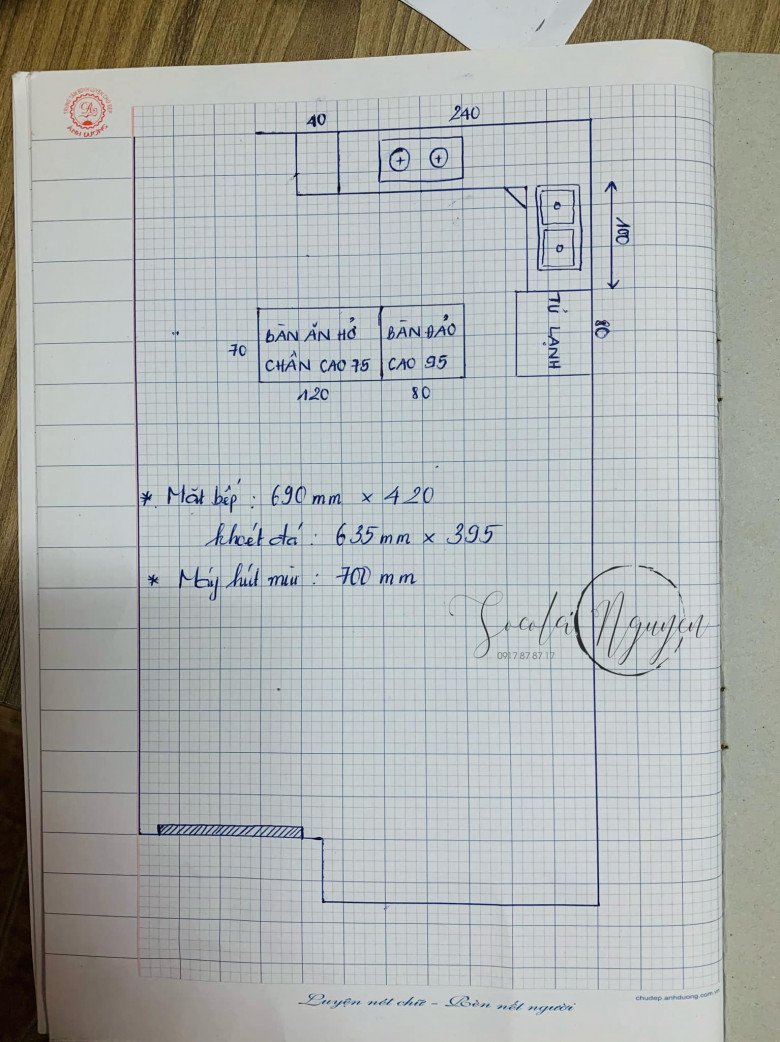 ÁNH DƯƠNG
40
240
100
TỦ LẠNH
80
70
BÀN ĂN HỞ
CHÂN CAO 75
BÀN ĐẢO
CAO 95
120
80
* Mặt bếp : 690 mm × 420
khoét đá : 635 mm × 395
* Máy hút mùi : 700 mm
Socola Nguyen
0917 87 87 17
Luyện nét chữ - Rèn nết người
chudep.anhduong.com.vn